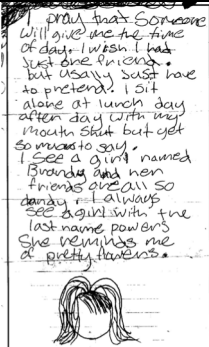 I pray that someone
will give me the time
of day. I wish I had
just one friend.
but usally just have
to pretend. I sit
alone at lunch day
after day with my
mouth shut but yet
so much to say.
I see a girl named
Brandy and her
friends are all so
dandy. I always
see a girl with the
last name powers
She reminds me
of pretty flowers.